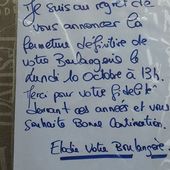 Je suis au regret de
vous annoncer la
fermeture définitive de
votre Boulangerie le
Lundi 10 Octobre à 13h.
Merci pour votre fidélité
durant ces années et vous
souhaite Bonne Continuation.
Elodie Votre Boulangère.